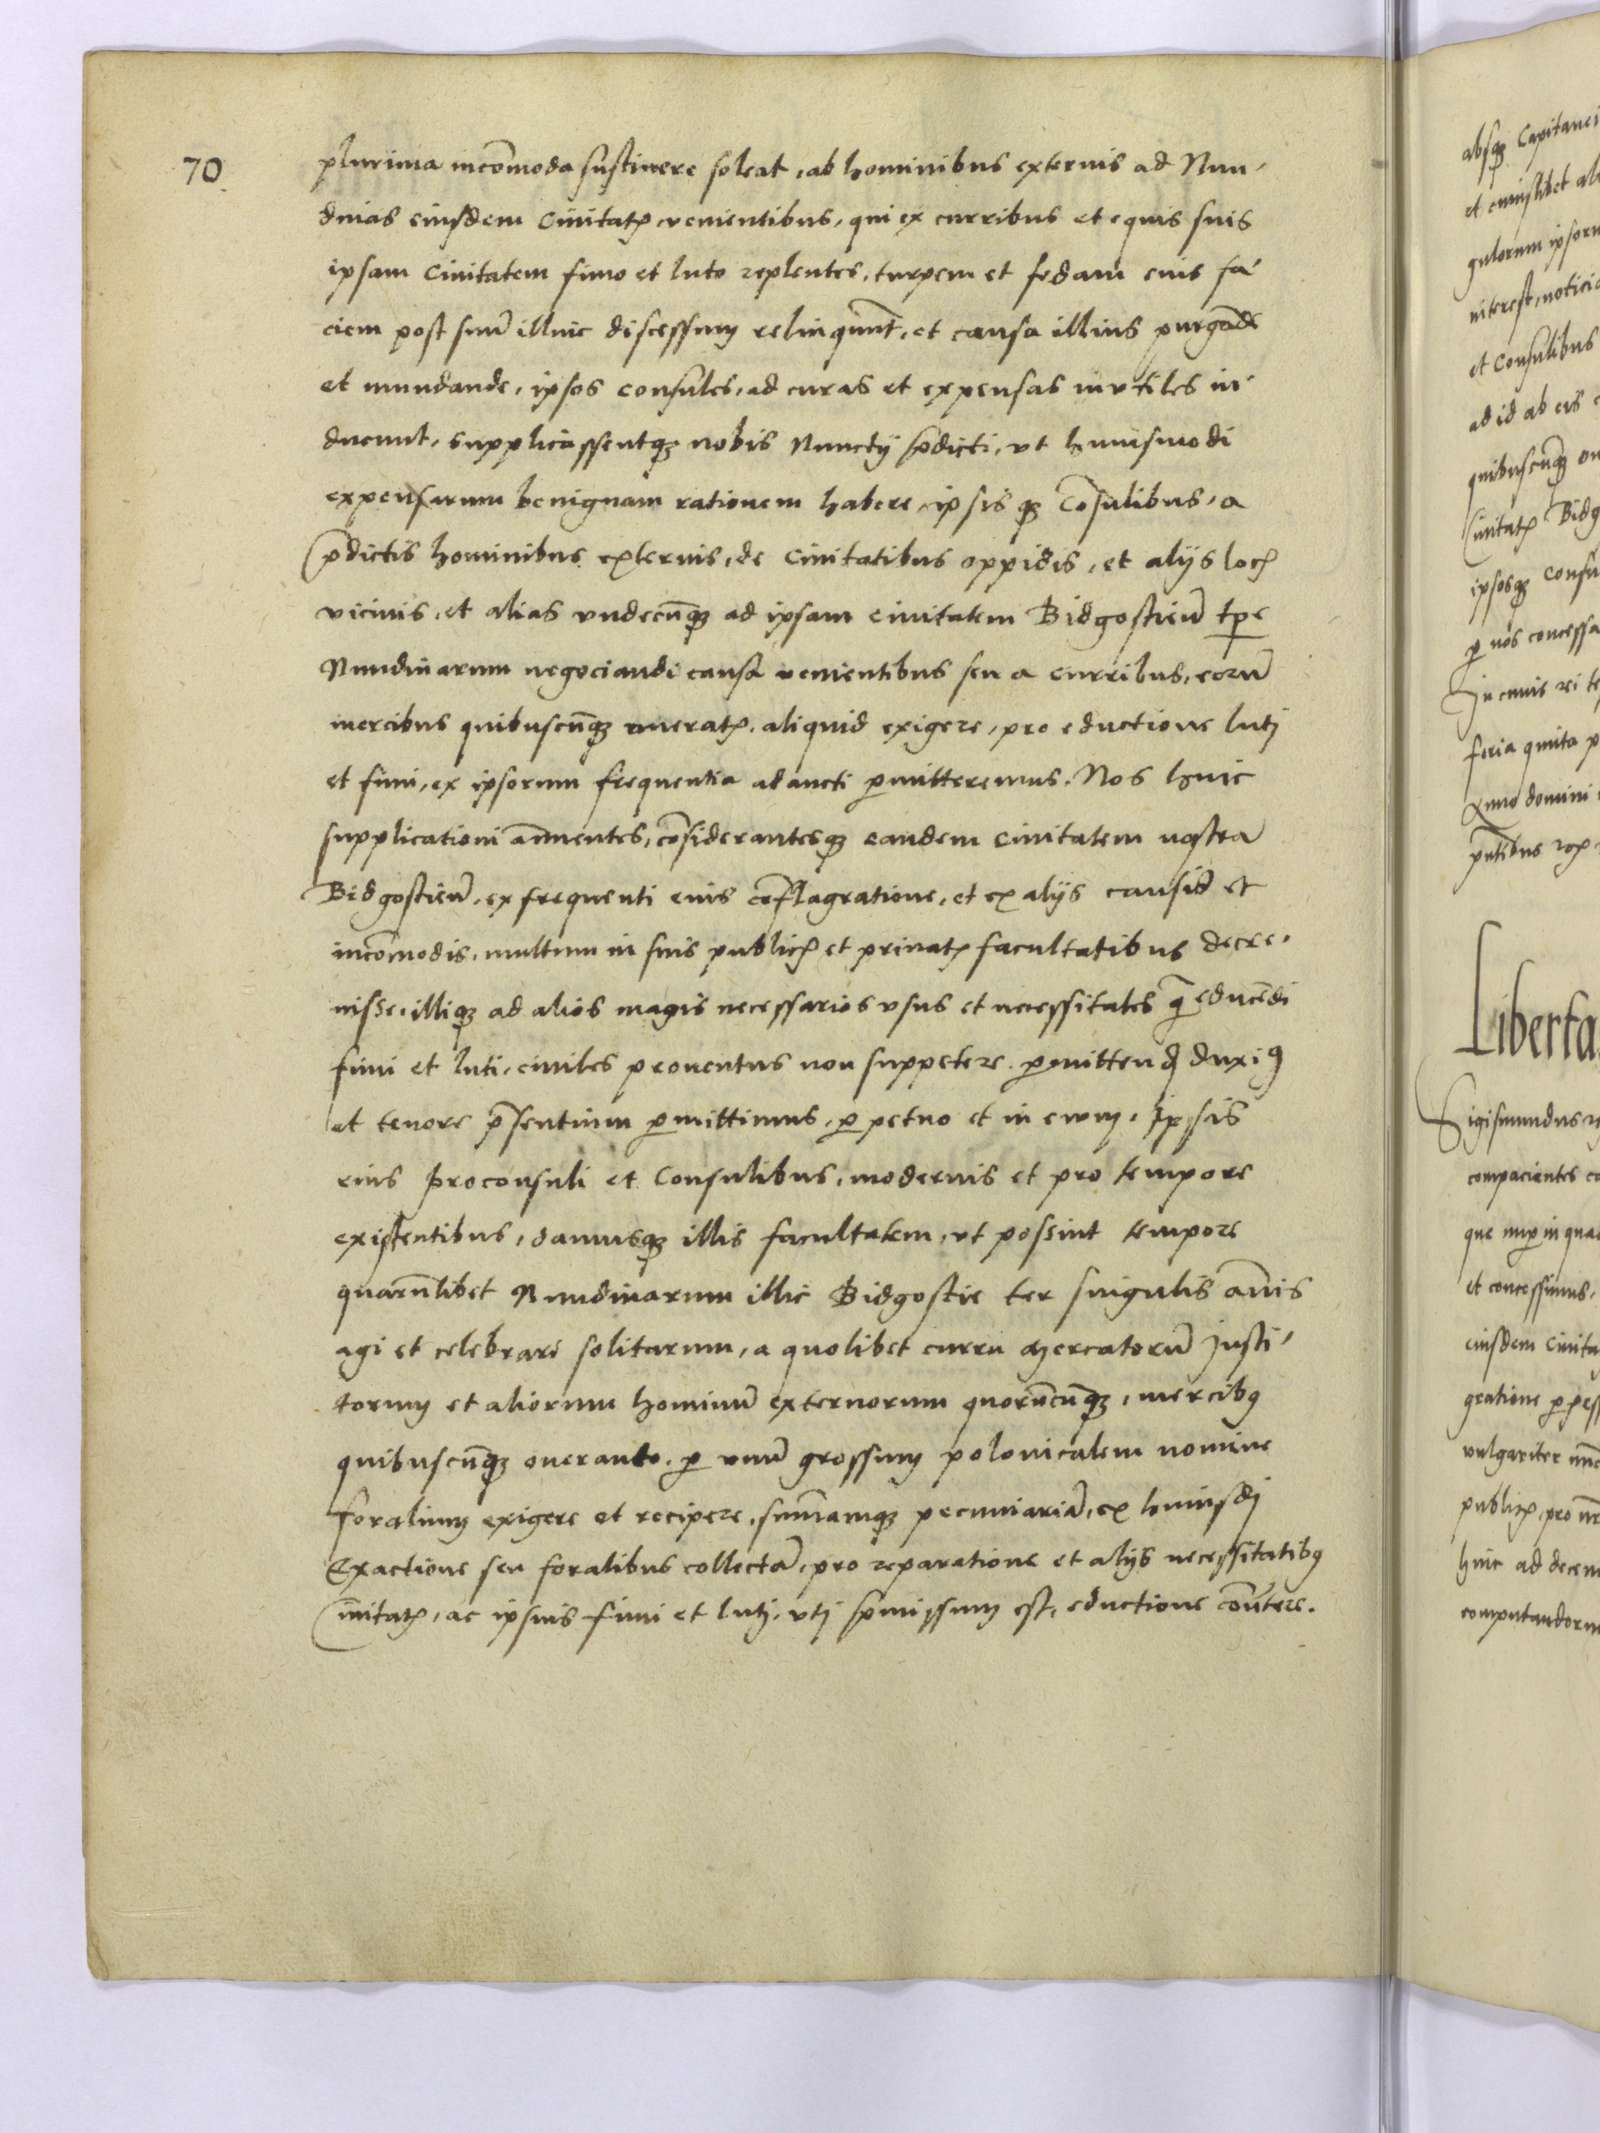 70
plurima incōmoda sustinere soleat, ab hominibus externis ad Nun-
dinas eiusdem Ciuitatꝭ venientibus, qui ex curribus et equis suis
ipsam Ciuitatem fimo et luto replentes, turpem et fedam eius fa-
ciem post suū illinc discessum relinqunt̄, et causa illius purgādē
et mundande, ipsos consules, ad curas et expensas inutiles in-
ducunt, supplicassentqꝫ nobis Nunctij p̄dicti, vt huiusmodi
expensarum benignam rationem habere, ipsisqꝫ Cōsulibus, a
p̄dictis hominibus externis, de Ciuitatibus oppidis, et alijs locꝭ
vicinis, et alias vndecūqꝫ ad ipsam ciuitatem Bidgostieñ tp̄e
Nundinarum negociandi causa venientibus seu a curribus, eorū
mercibus quibuscūqꝫ oneratꝭ, aliquid exigere, pro eductione lutj
et fimi, ex ipsorum frequentia adaucti ꝑmitteremus. Nos huic
supplicationi ānuentes, cōsiderantesqꝫ eandem ciuitatem nostrā
Bidgostieñ, ex frequenti eius cōflagratione, et ex alijs causis et
incōmodis, multum in suis publicꝭ et priuatꝭ facultatibus decre-
uisse, illiqꝫ ad alios magis necessarios vsus et necessitates q̄ educēdi
fimi et luti, ciuiles prouentus non suppetere. ꝑmittendꝭ duximꝰ
et tenore p̄sentium ꝑmittimus, ꝑpetuo et in ewum, Ipsis
eius Proconsuli et Consulibus, modernis et pro tempore
existentibus, damusqꝫ illis facultatem, vt possint tempore
quarūlibet Nundinarum illic Bidgostie ter singulis ānis
agi et celebrari solitarum, a quolibet curru Mercatorū Insti-
torum et aliorum hominū externorum quorūcūqꝫ, mercibꝰ
quibuscūqꝫ onerauto, ꝑ vnū grossum polonicalem nomine
foralium exigere et recipere, sum̄amqꝫ pecuniariā, ex huiusdj
Exactione seu foralibus collectā, pro reparatione et alijs necessitatibꝰ
Ciuitatꝭ, ac ipsius fimi et lutj, vtj p̄missum est, eductione cōuertere.
absqꝫ Capitanei
et cuiuslibet ali
gulorum ipsoru
interest, noticia
et Consulibus
ad id ab eis
quibuscūqꝫ on
Ciuitatꝭ Bidg
ipsosqꝫ Consu
ꝑ nos concessa
In cuius rei te
feria quinta p
Anno domini
Liberta
Sigismundus
compacientes co
que nuꝑ in qua
et concessimus,
eiusdem Ciuita
gratione ꝑpess
vulgariter
publicꝭ, pro
huic ad decem
computandoru